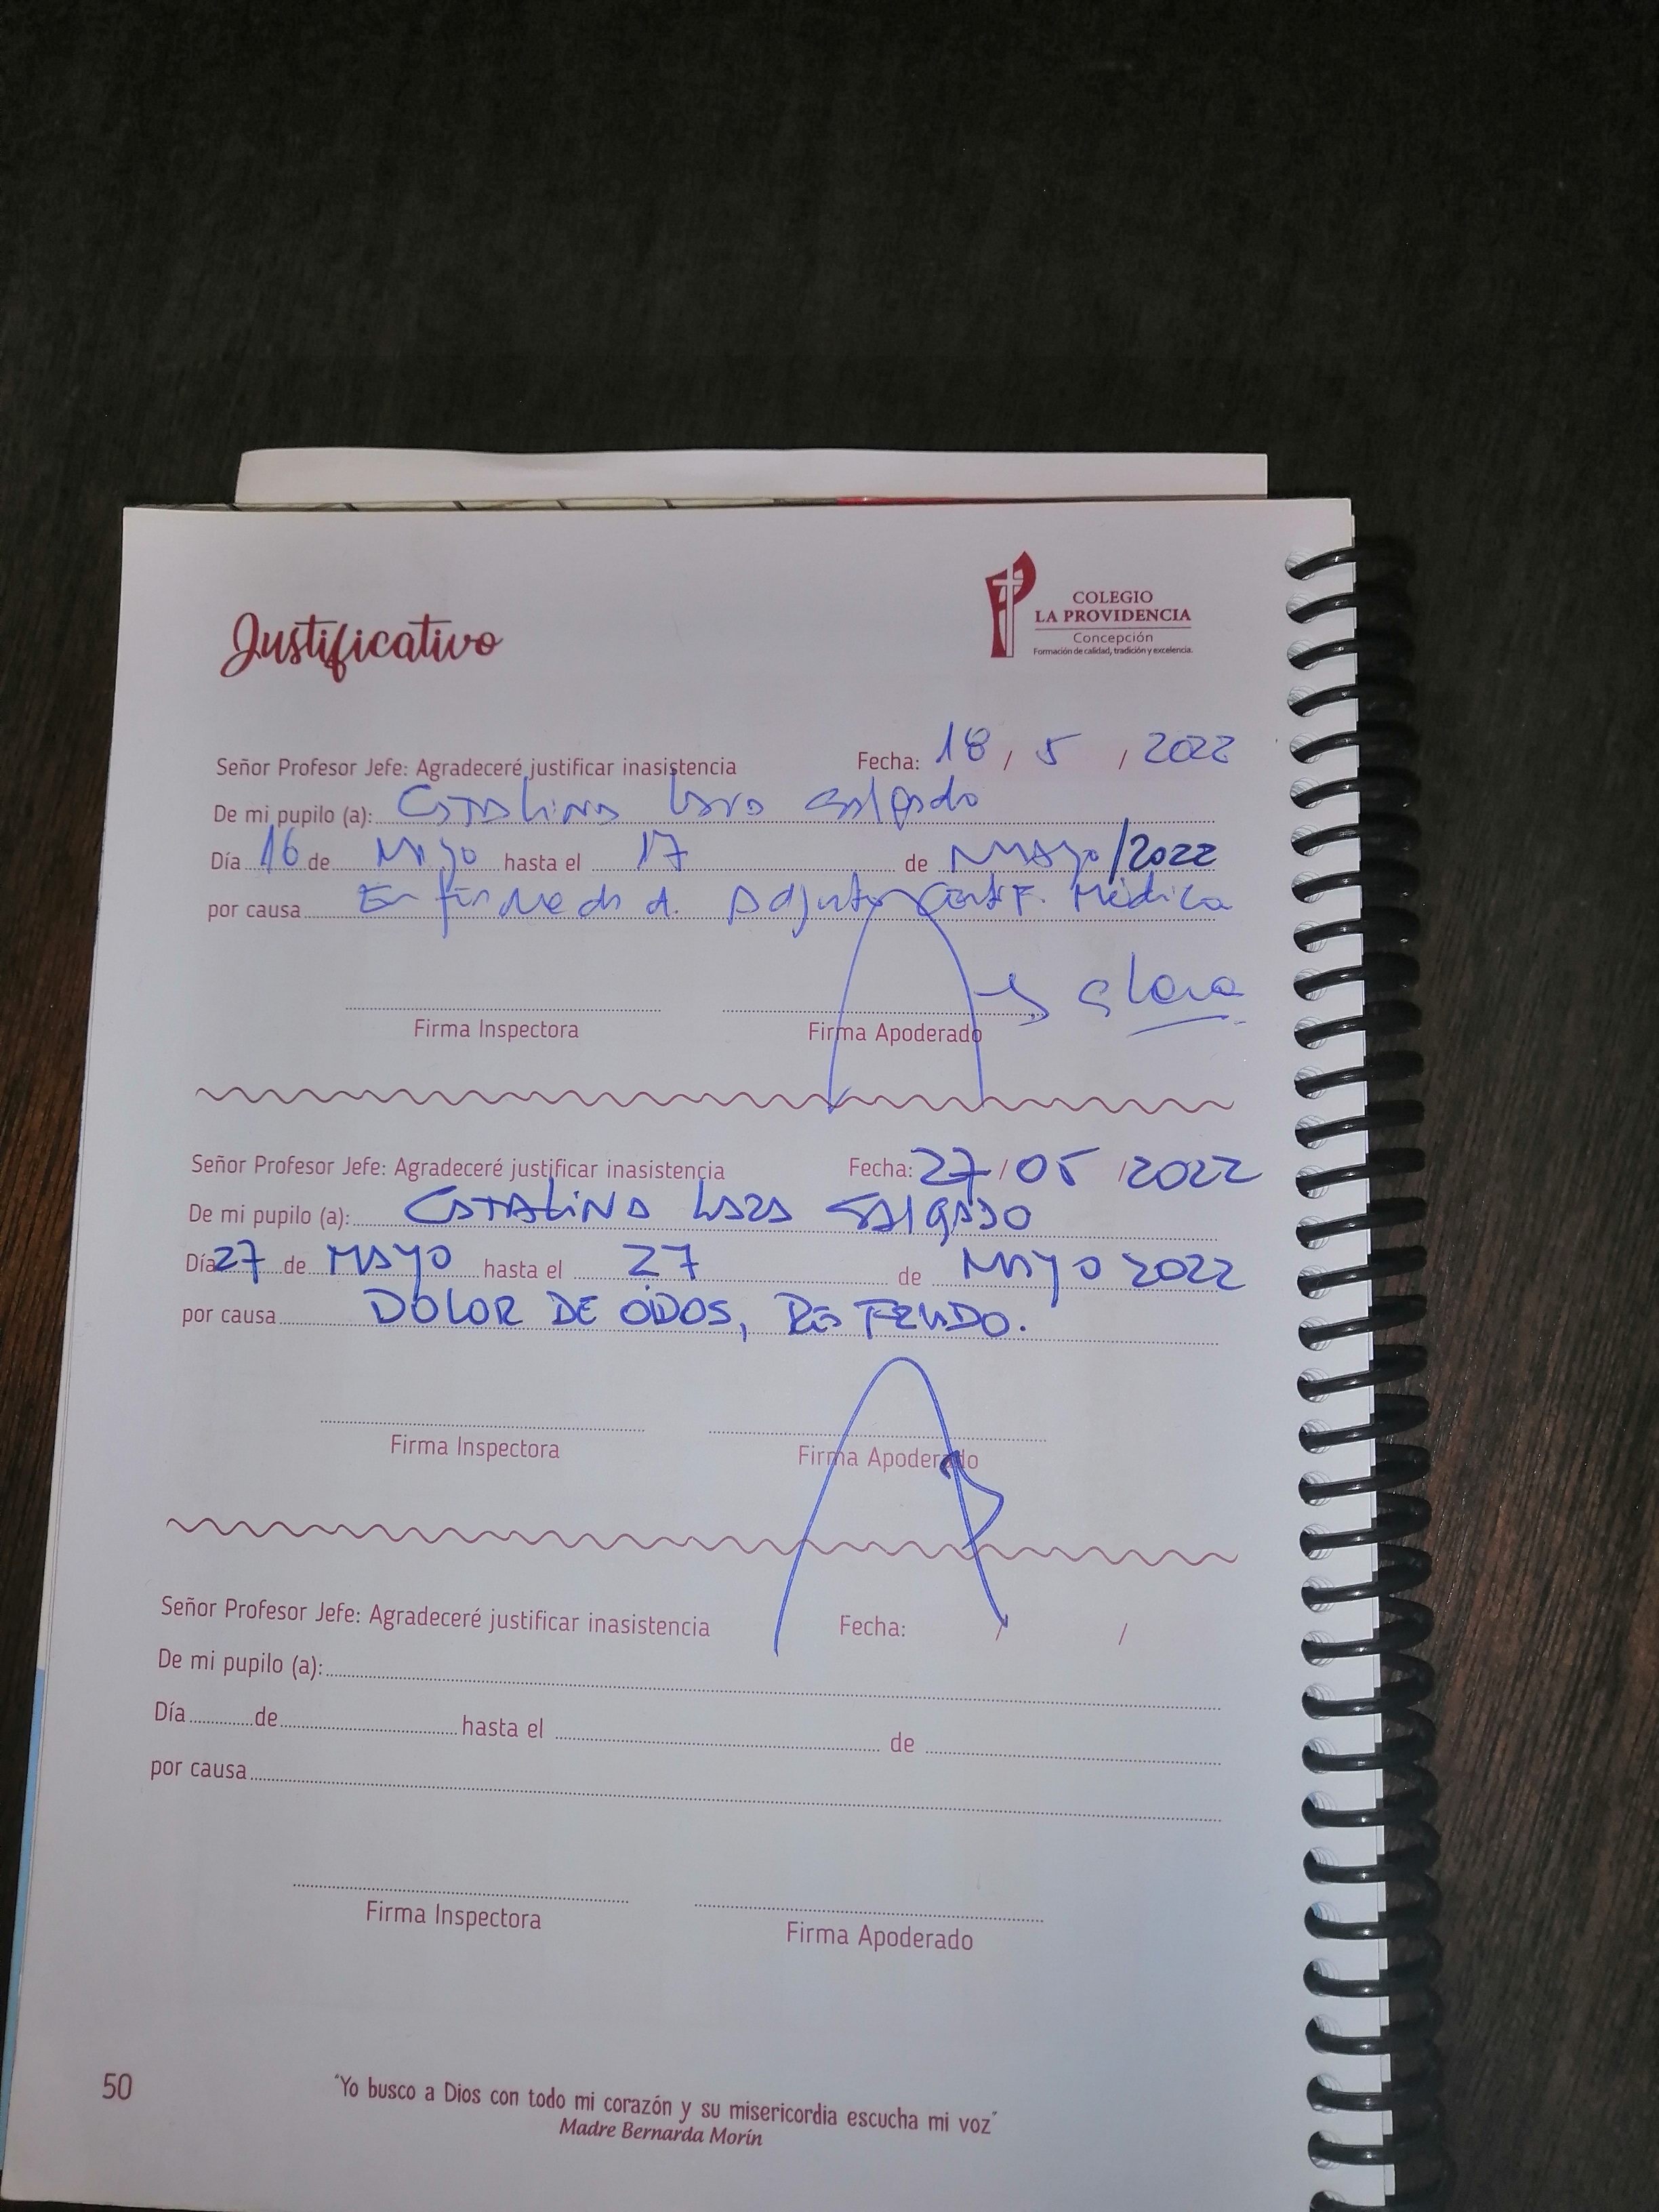 Justificativo
COLEGIO
LA PROVIDENCIA
Concepción
Formación de calidad, tradición y excelencia.
Señor Profesor Jefe: Agradeceré justificar inasistencia Fecha: 18 / 5 / 2022
De mi pupilo (a): Catalina Lara Salgado
Día 16 de Mayo hasta el 17 de Mayo/2022
por causa Enfermedad. Adjunto Certif. Médico
Firma Inspectora Firma Apoderado
Señor Profesor Jefe: Agradeceré justificar inasistencia Fecha: 27 / 05 / 2022
De mi pupilo (a): CATALINA LARA SALGADO
Día 27 de MAYO hasta el 27 de MAYO 2022
por causa DOLOR DE OIDOS, RESFRIADO.
Firma Inspectora Firma Apoderado
Señor Profesor Jefe: Agradeceré justificar inasistencia Fecha: / /
De mi pupilo (a):
Día de hasta el de
por causa
Firma Inspectora Firma Apoderado
50
"Yo busco a Dios con todo mi corazón y su misericordia escucha mi voz"
Madre Bernarda Morín